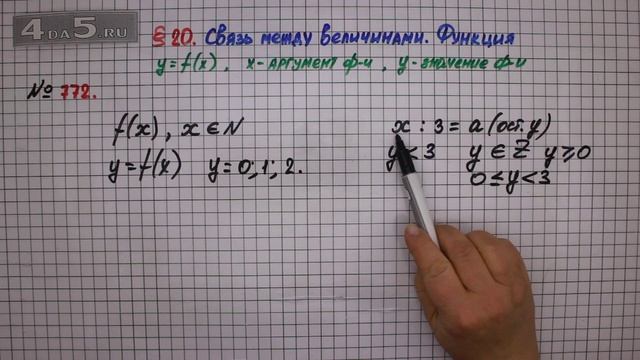 4DA5.RU
§ 20. Связь между величинами. Функция
y = f(x), x - аргумент ф-и, y - значение ф-и
№ 772.
f(x), x ∈ N
y = f(x) y = 0; 1; 2.
x : 3 = a (ост. y)
y < 3 y ∈ Z y ⩾ 0
0 ≤ y < 3